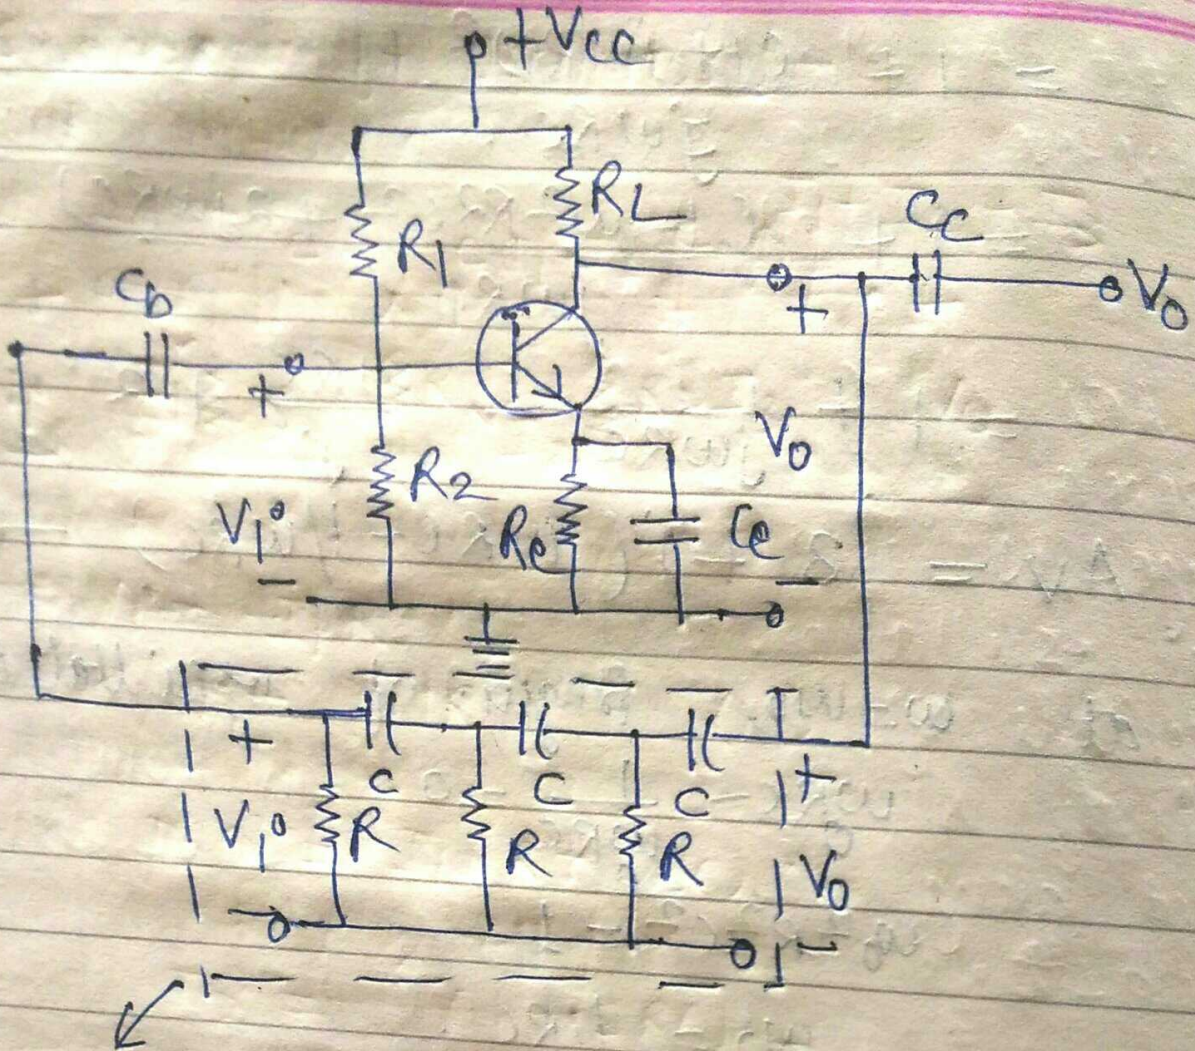 +Vcc
RL
Cc
R1
Cb
+
+
Vo
Vo
R2
Vi
Re
Ce
-
-
+
C
C
C
+
Vi
R
R
R
Vo
-
-